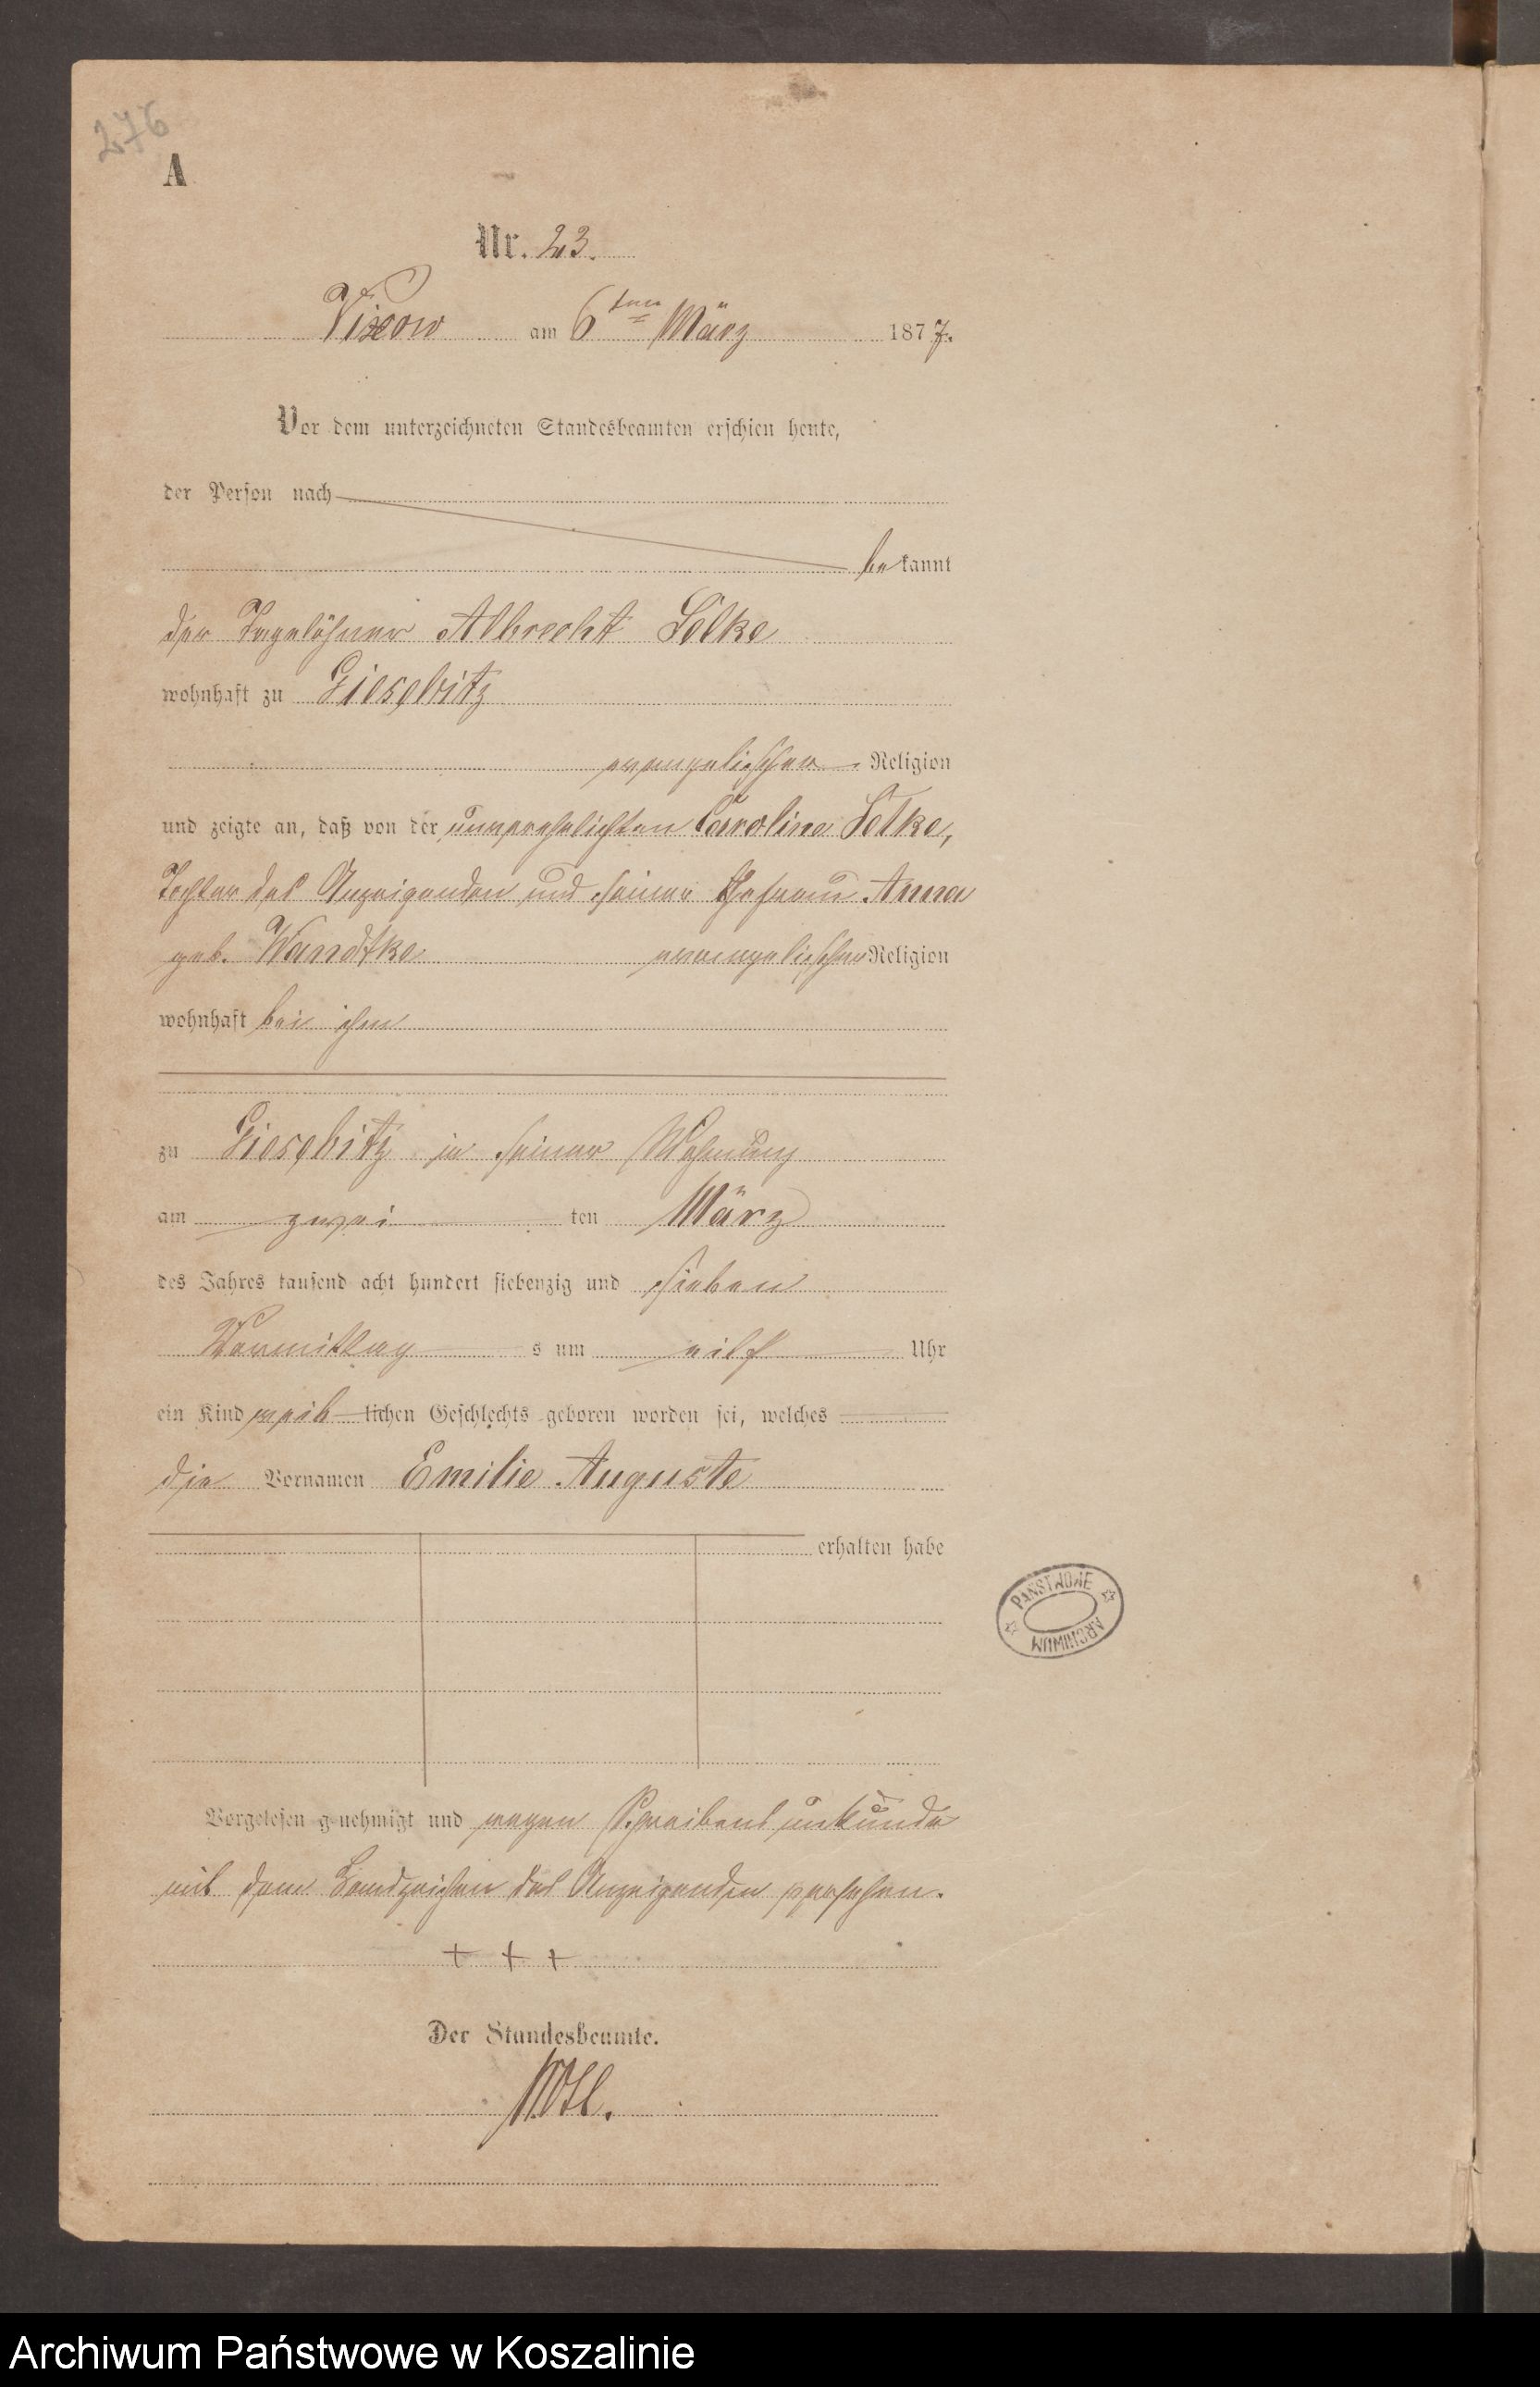 276
A
Nr. 23.
Vixow am 6ten März 1877.
Vor dem unterzeichneten Standesbeamten erschien heute,
der Person nach
bekannt
der Tagelöhner Albrecht
wohnhaft zu Giesebitz
evangelischer Religion
und zeigte an, daß von der unverehelichten Caroline
Tochter des Anzeigenden und seiner Ehefrau Anna
geb. Wandtke evangelischer Religion
wohnhaft bei ihm
zu Giesebitz in seiner Wohnung
am zwei ten März
des Jahres tausend acht hundert siebenzig und sieben
Vormittag s um eilf Uhr
ein Kind weib lichen Geschlechts geboren worden sei, welches
die Vornamen Emilie Auguste
erhalten habe
Vorgelesen genehmigt und wegen Schreibensunkunde
mit dem Handzeichen des Anzeigenden versehen.
+ + +
Der Standesbeamte.
PAŃSTWOWE ARCHIWUM
Archiwum Państwowe w Koszalinie